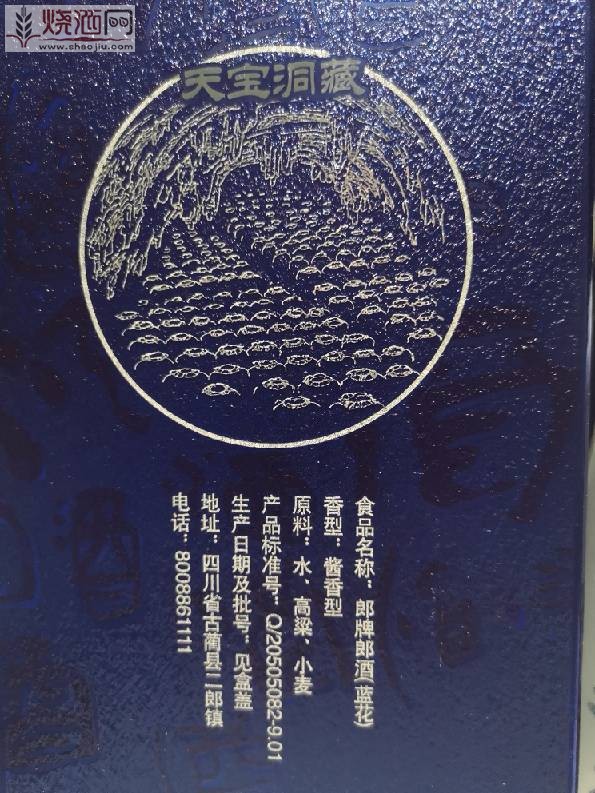 烧酒网
www.shaojiu.com
天宝洞藏
食品名称：郎牌郎酒(蓝花)
香型：酱香型
原料：水、高粱、小麦
产品标准号：Q/20505082-9.01
生产日期及批号：见盒盖
地址：四川省古蔺县二郎镇
电话：8008861111